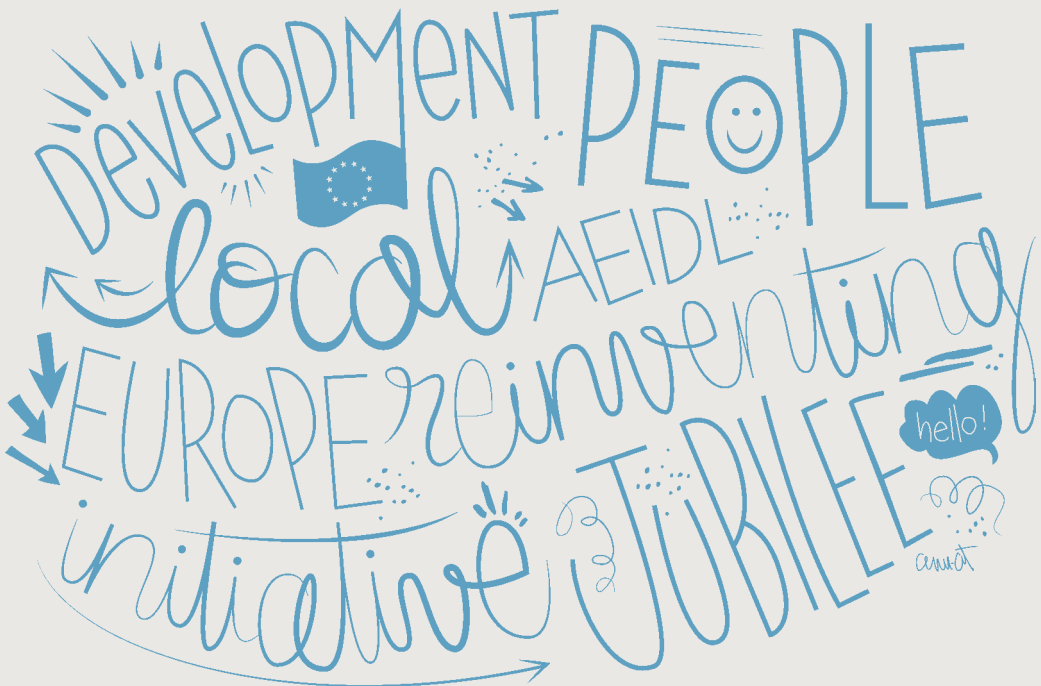 DeveLOPMeNT PEOPLE
local AEIDL
EUROPE reinventing
initiative JUBILEE
hello!